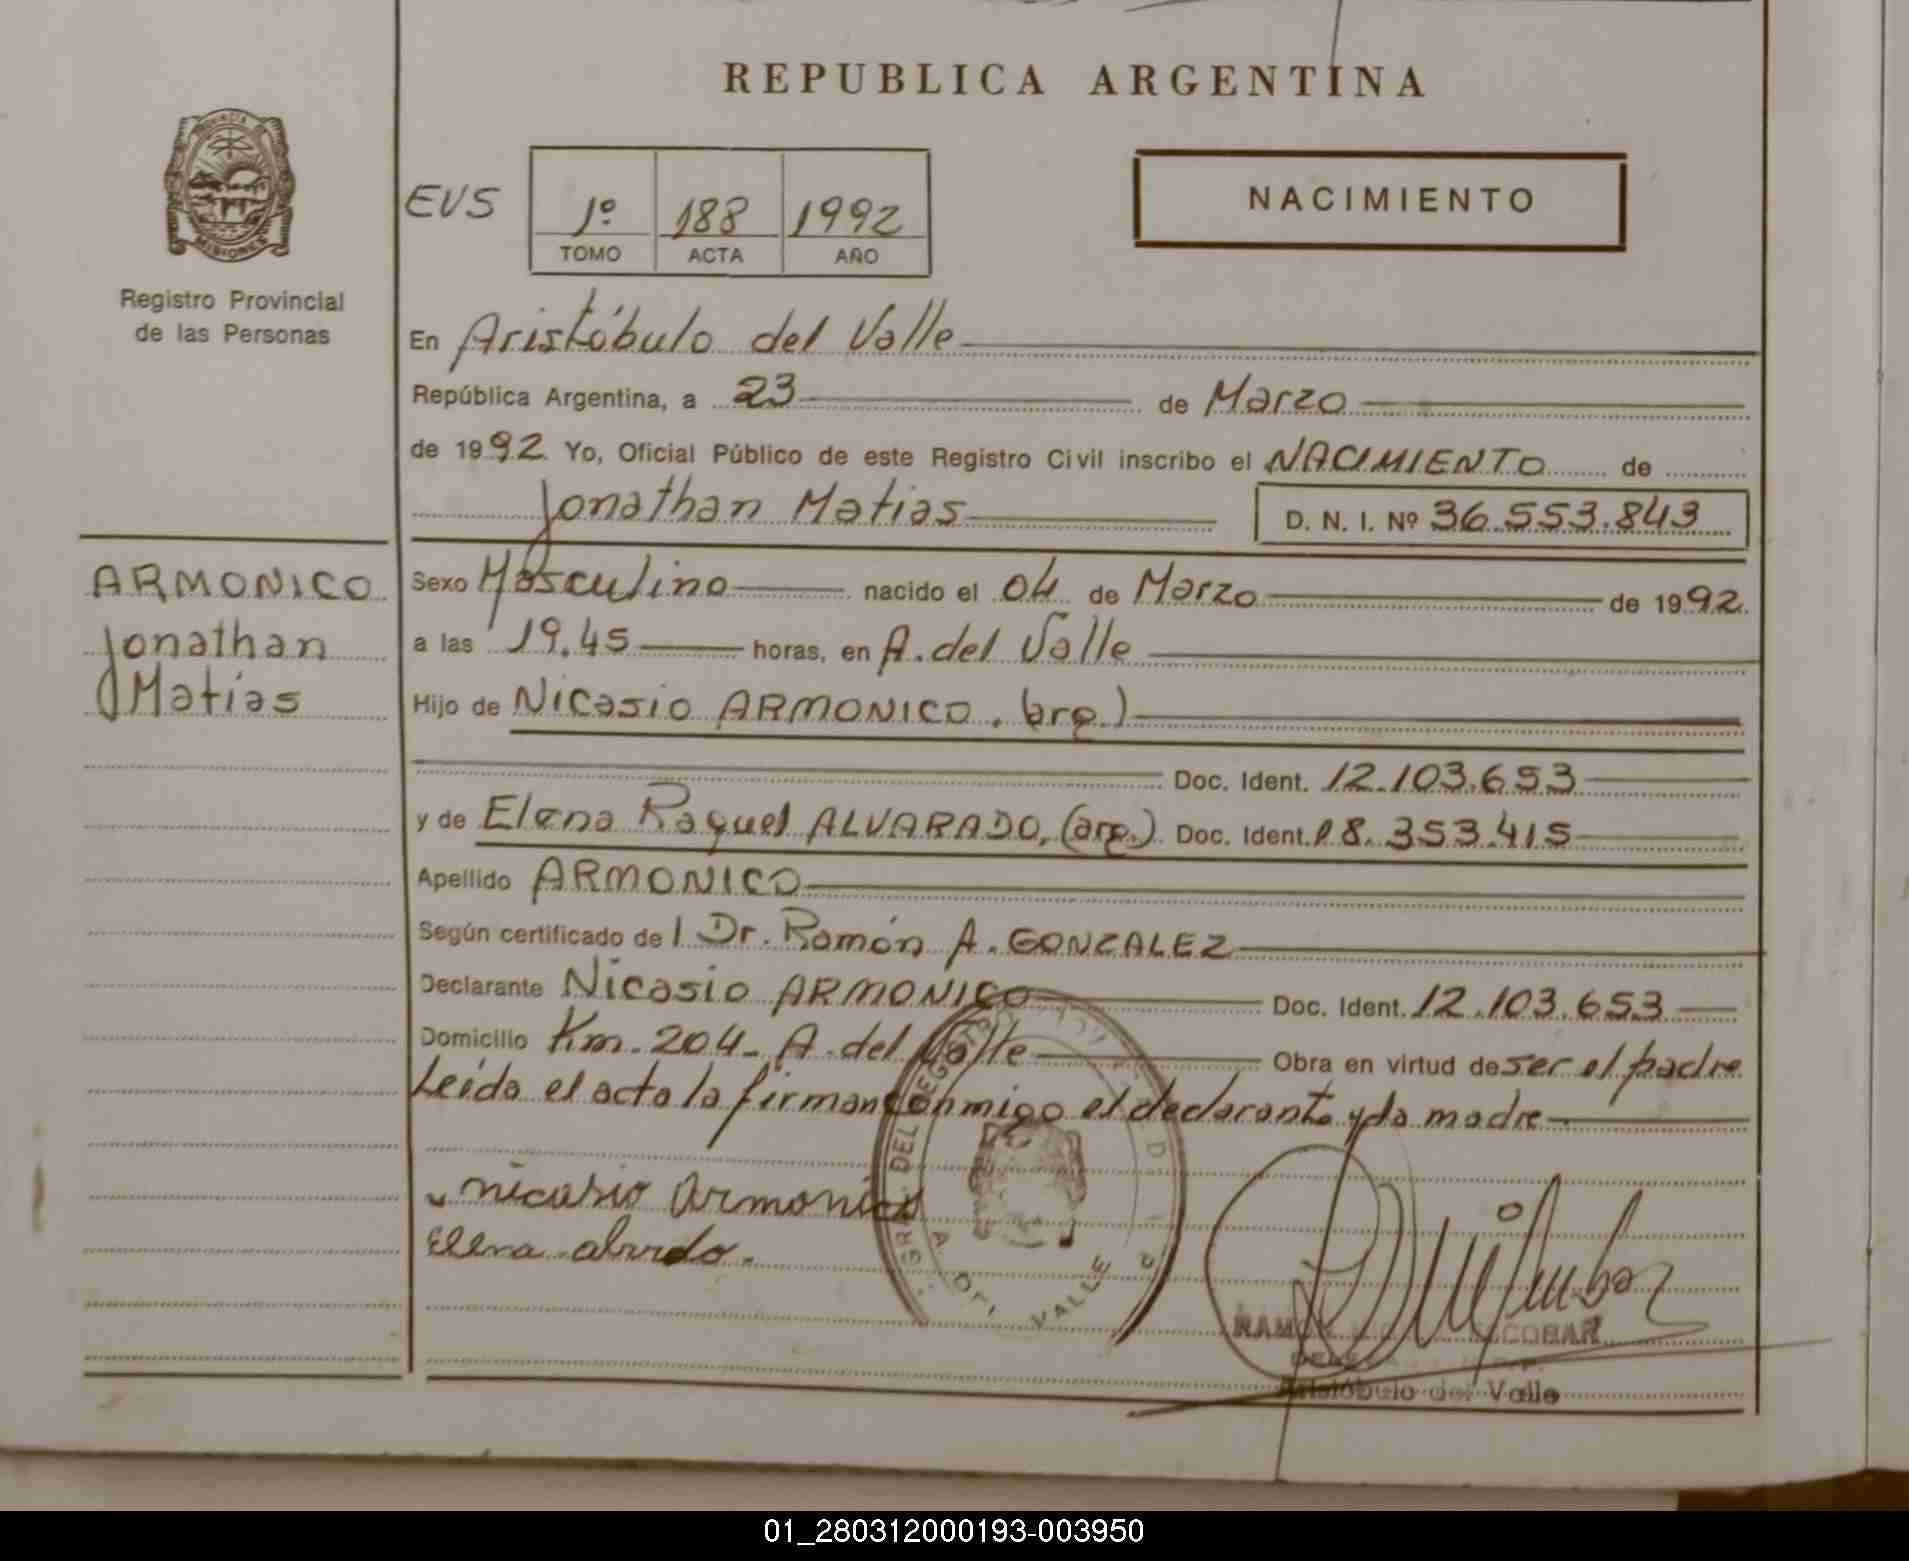 REPUBLICA ARGENTINA
PROVINCIA
MISIONES
Registro Provincial
de las Personas
EVS
1º 188 1992
TOMO ACTA AÑO
NACIMIENTO
En Aristóbulo del Valle
República Argentina, a 23 de Marzo
de 1992 Yo, Oficial Público de este Registro Civil inscribo el NACIMIENTO de
Jonathan Matias D. N. I. Nº 36.553.843
ARMONICO
Jonathan
Matías
Sexo Masculino nacido el 04 de Marzo de 1992.
a las 19.45 horas, en A. del Valle
Hijo de Nicasio ARMONICO. (arg.)
Doc. Ident. 12.103.653
y de Elena Raquel ALVARADO, (arg.) Doc. Ident. 18.353.415
Apellido ARMONICO
Según certificado del Dr. Ramón A. GONZALEZ
Declarante Nicasio ARMONICO Doc. Ident. 12.103.653
Domicilio Km. 204 - A. del Valle Obra en virtud de ser el padre
Leída el acta la firman conmigo el declarante y la madre
nicasio Armonico
Elena
DEL REG
A. DEL VALLE
RAMON ESCOBAR
Aristóbulo del Valle
01_280312000193-003950